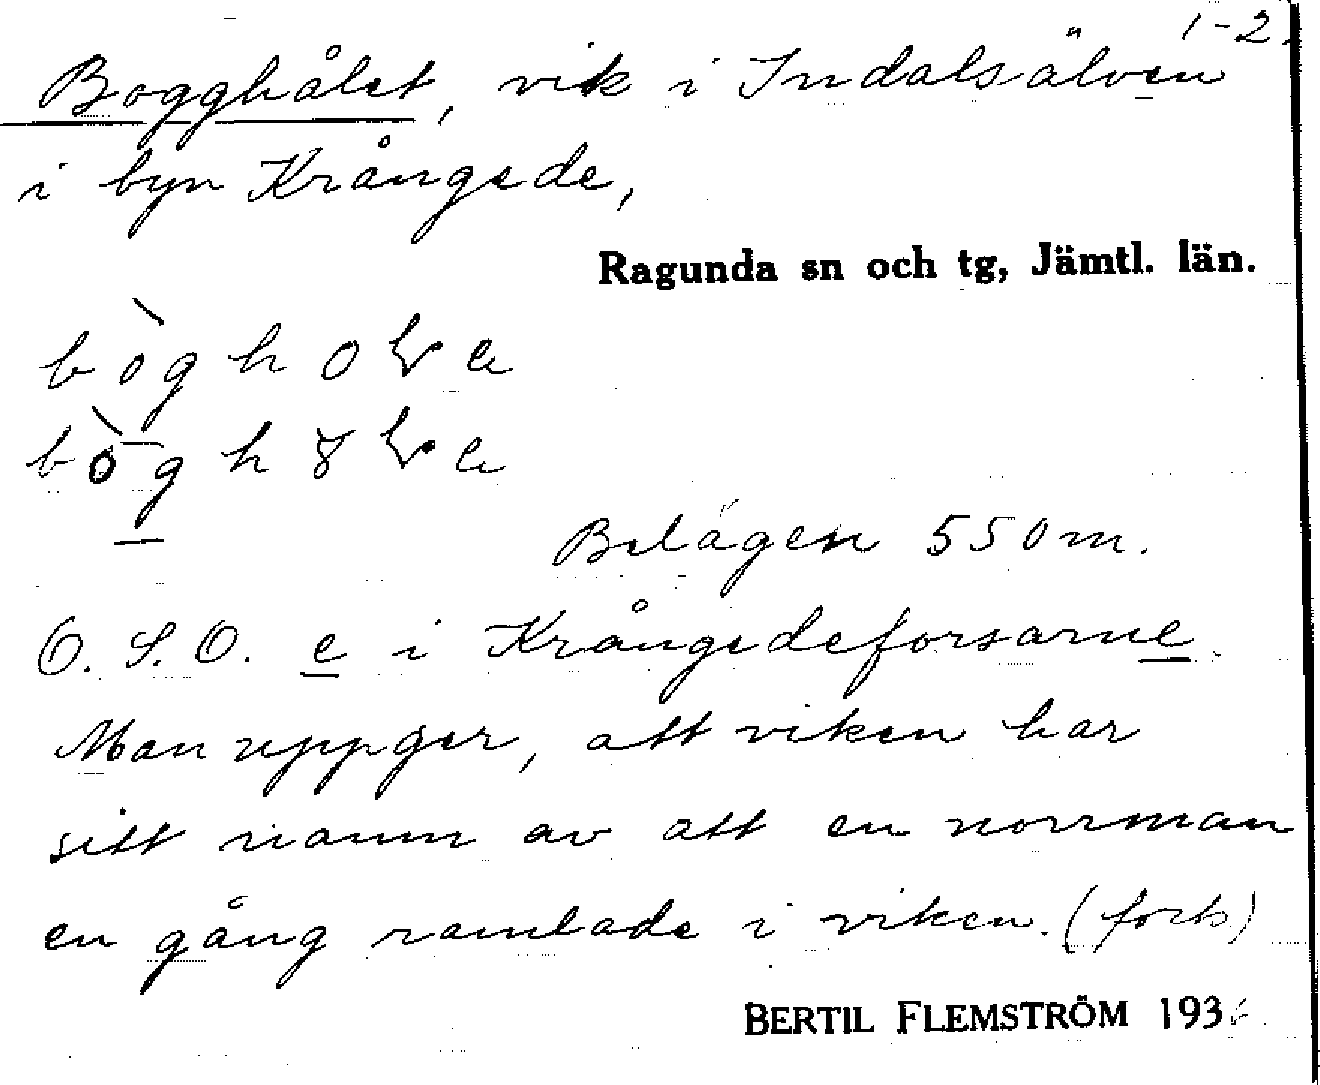 1-2.
Bogghålet, vik i Indalsälven
i byn Krångede,
Ragunda sn och tg, Jämtl. län.
Belägen 550 m.
O. S. O. e i Krångedeforsarne.
Man uppger, att viken har
sitt namn av att en norrman
en gång ramlade i viken. (forts)
BERTIL FLEMSTRÖM 193